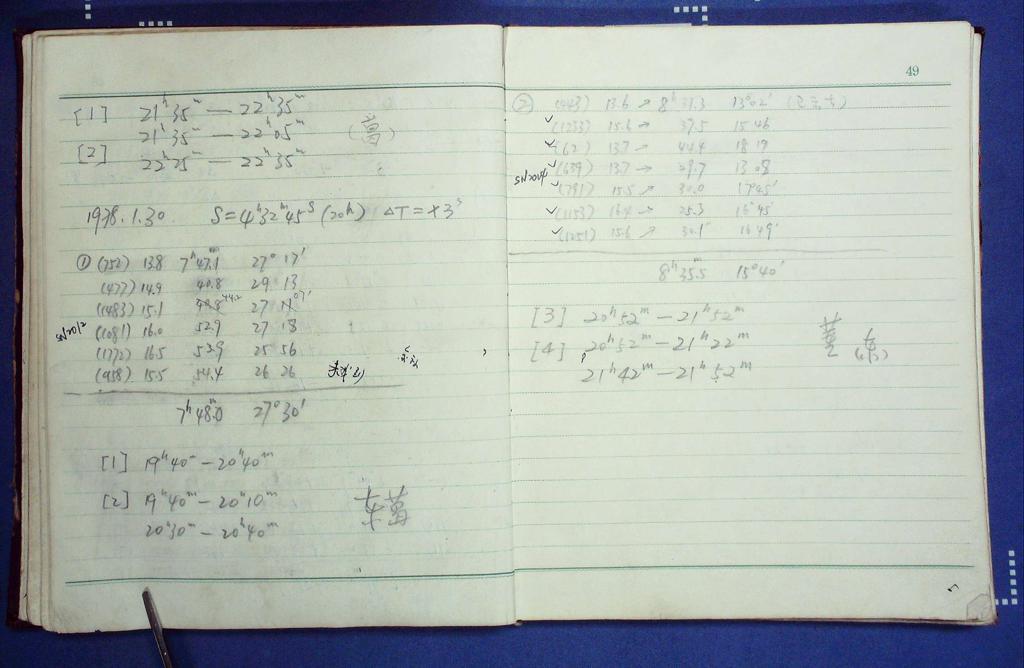 [1] 21ʰ35ᵐ — 22ʰ35ᵐ
21ʰ35ᵐ — 22ʰ05ᵐ
[2]
22ʰ25ᵐ — 22ʰ35ᵐ
1978.1.30 S=4ʰ32ᵐ45ˢ (20ʰ) ΔT=+3ˢ
① (752) 13.8 7ʰ47.1ᵐ 27° 17'
(477) 14.9 40.8 29 13
(1483) 15.1 44.2 27 07'
(1081) 16.0 52.9 27 18
(1772) 16.5 53.9 25 56
(958) 15.5 54.4 26 26
7ʰ48.0ᵐ 27°30'
[1] 19ʰ40ᵐ — 20ʰ40ᵐ
[2] 19ʰ40ᵐ — 20ʰ10ᵐ
20ʰ30ᵐ — 20ʰ40ᵐ
49
② (443) 13.6 → 8ʰ 13°02'
(1233) 15.6 → 37.5 15 46
(62) 13.7 → 44.4 18 19
(639) 13.7 → 39.7 13 08
(791) 15.5 → 30.0 17°05'
(1153) 16.4 → 25.3 16°45'
(1251) 15.6 → 30.1 16 49'
8ʰ35.5ᵐ 15°40'
[3] 20ʰ52ᵐ — 21ʰ52ᵐ
[4] 20ʰ52ᵐ — 21ʰ22ᵐ
21ʰ42ᵐ — 21ʰ52ᵐ